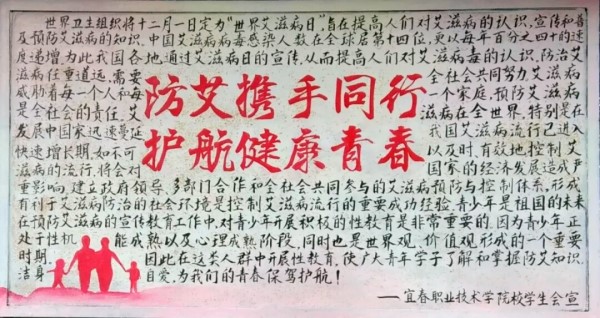 世界卫生组织将十二月一日定为“世界艾滋病日”旨在提高人们对艾滋病的认识.宣传和普
及预防艾滋病的知识.中国艾滋病病毒感染人数在全球居第十四位,更以每年百分之四十的速
度递增.为此我国各地,通过艾滋病日的宣传,从而提高人们对艾滋病毒的认识.防治艾
滋病任重道远,需要全社会共同努力.艾滋病
威胁着每一个人和每一个家庭,预防艾滋病
是全社会的责任.艾滋病在全世界,特别是在
发展中国家迅速蔓延我国艾滋病流行已进入
快速增长期,如不可以及时,有效地控制艾
滋病的流行,将会对国家的经济发展造成严
防艾携手同行
护航健康青春
重影响,建立政府领导,多部门合作和全社会共同参与的艾滋病预防与控制体系,形成
有利于艾滋病防治的社会环境是控制艾滋病流行的重要成功经验.青少年是祖国的未来
在预防艾滋病的宣传教育工作中,对青少年开展积极的性教育是非常重要的.因为青少年正
处于性机能成熟以及心理成熟阶段,同时也是世界观,价值观形成的一个重要
时期.因此在这类人群中开展性教育,使广大青年学子了解和掌握防艾知识.
洁身自爱,为我们的青春保驾护航!
——宜春职业技术学院校学生会宣